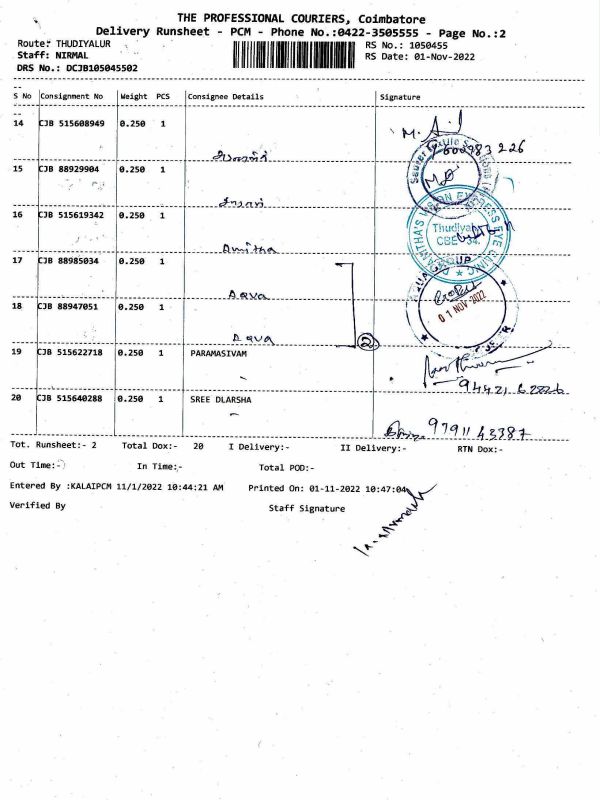 THE PROFESSIONAL COURIERS, Coimbatore
Delivery Runsheet - PCM - Phone No.:0422-3505555 - Page No.:2
Route: THUDIYALUR
RS No.: 1050455
Staff: NIRMAL
RS Date: 01-Nov-2022
DRS No.: DCJB105045502
S No Consignment No Weight PCS Consignee Details Signature
14 CJB 515608949 0.250 1
15 CJB 88929904 0.250 1
16 CJB 515619342 0.250 1
Amitha
17 CJB 88985034 0.250 1
Aqva
18 CJB 88947051 0.250 1
Aqva
2
Thudiyalur
CBE - 34.
01 NOV 2022
19 CJB 515622718 0.250 1 PARAMASIVAM
20 CJB 515640288 0.250 1 SREE DLARSHA
97911 43387
Tot. Runsheet:- 2 Total Dox:- 20 I Delivery:- II Delivery:- RTN Dox:-
Out Time:- In Time:- Total POD:-
Entered By :KALAIPCM 11/1/2022 10:44:21 AM Printed On: 01-11-2022 10:47:04
Verified By Staff Signature